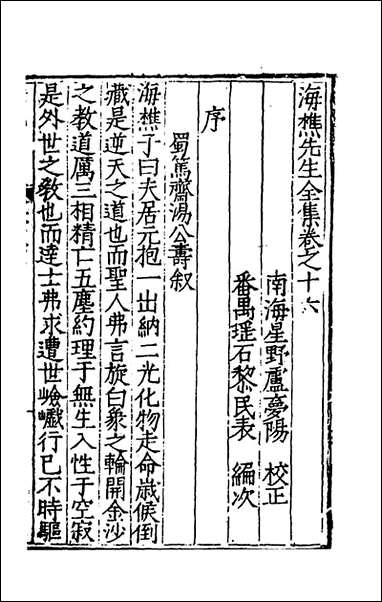 海樵先生全集卷之十六
南海星野盧夢陽　校正
番禺瑶石黎民表　編次
序
蜀篤齋湯公壽叙
海樵子曰夫居元抱一出納二光化物走命歳候倒
藏是逆天之道也而聖人弗言旋白象之輪開金沙
之教道厲三相精亡五塵約理于無生入性于空寂
是外世之教也而達士弗求遭世嶮巇行已不時驅